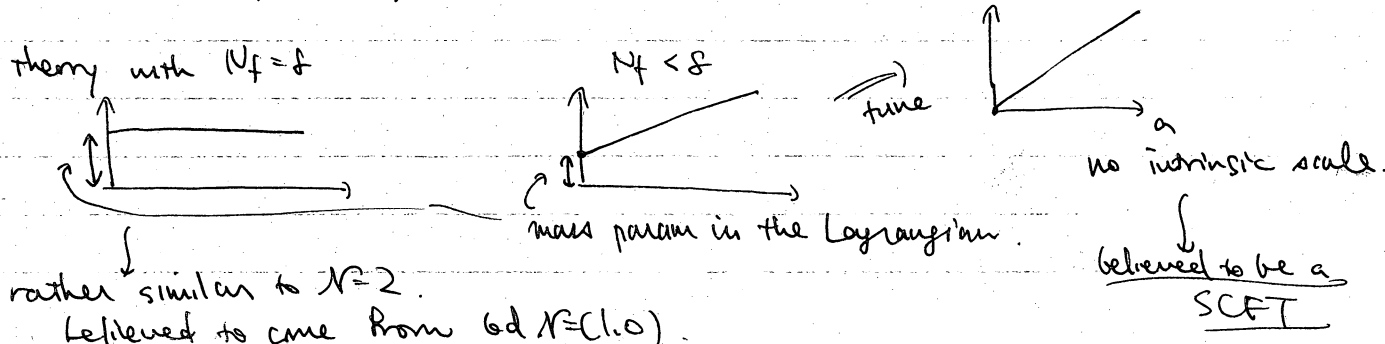 theory with Nf = 8
Nf < 8
tune
a
no intrinsic scale.
mass param in the Lagrangian.
believed to be a
SCFT
rather similar to N=2.
believed to come from 6d N=(1.0).